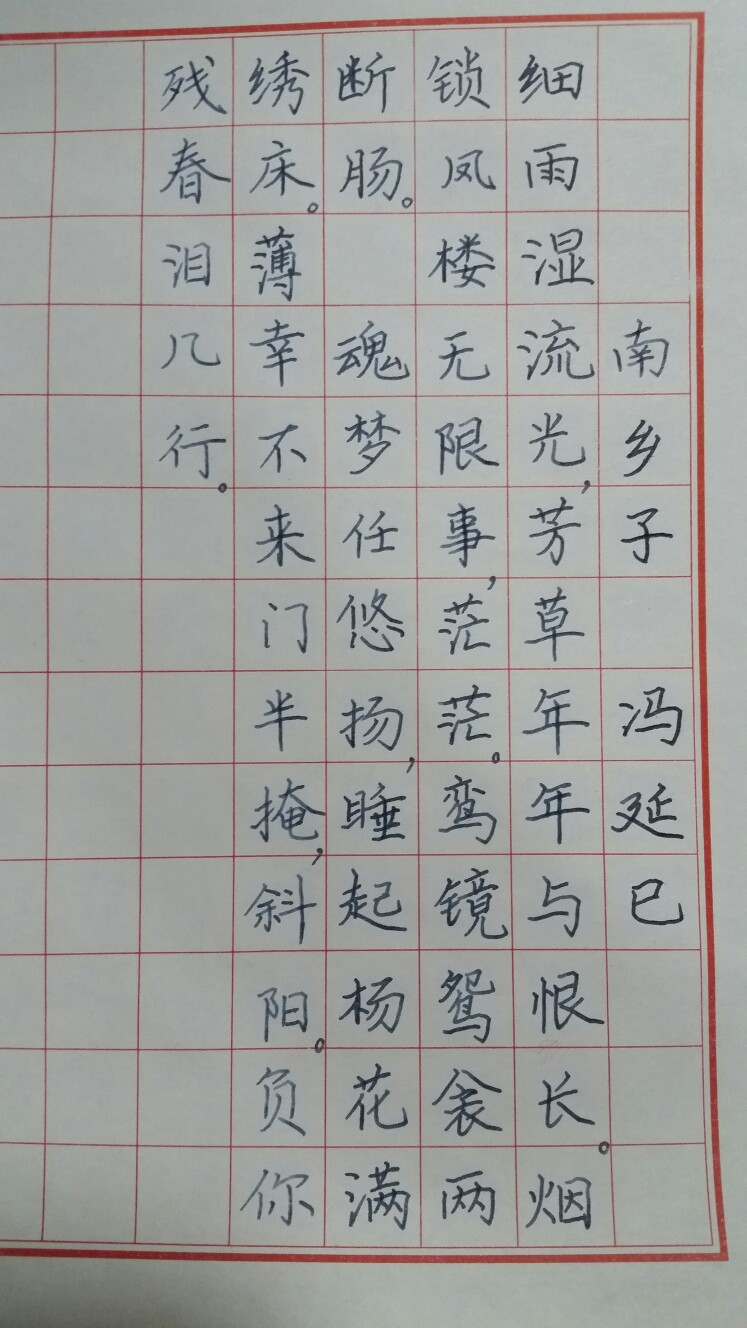 南乡子 冯延巳
细雨湿流光,芳草年年与恨长。烟
锁凤楼无限事,茫茫。鸾镜鸳衾两
断肠。 魂梦任悠扬,睡起杨花满
绣床。薄幸不来门半掩,斜阳。负你
残春泪几行。